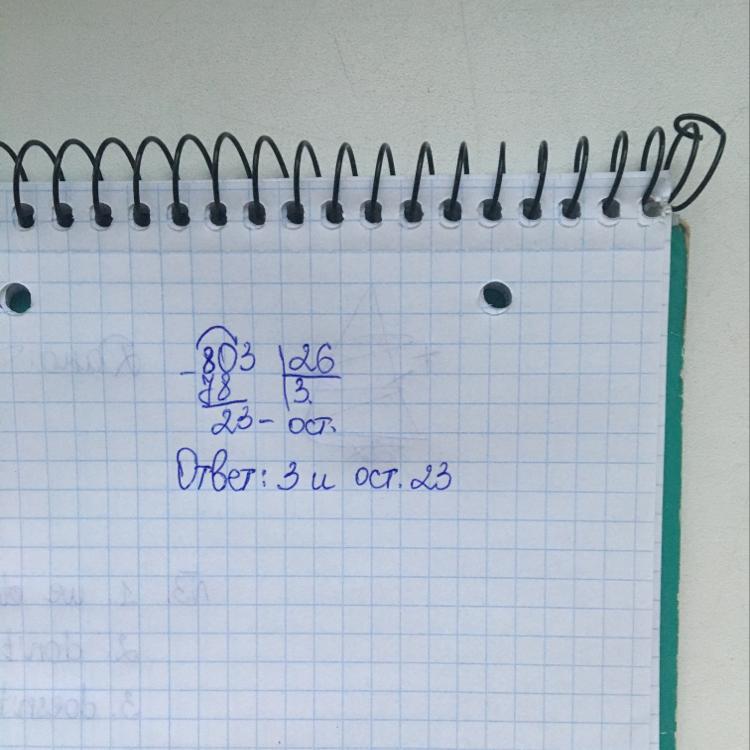 - 803 26
78 3.
23 - ост.
Ответ: 3 и ост. 23